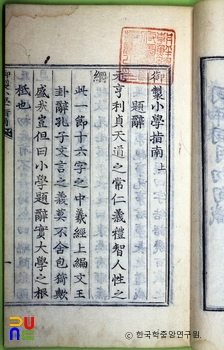 御製小學指南上
題辭
元亨利貞天道之常仁義禮智人性之
綱
此一節十六字之中羲經上編文王
卦辭孔子文言之義莫不含包猗歟
盛哉豈但曰小學題辭實大學之根
柢也
ⓒ 한국학중앙연구원